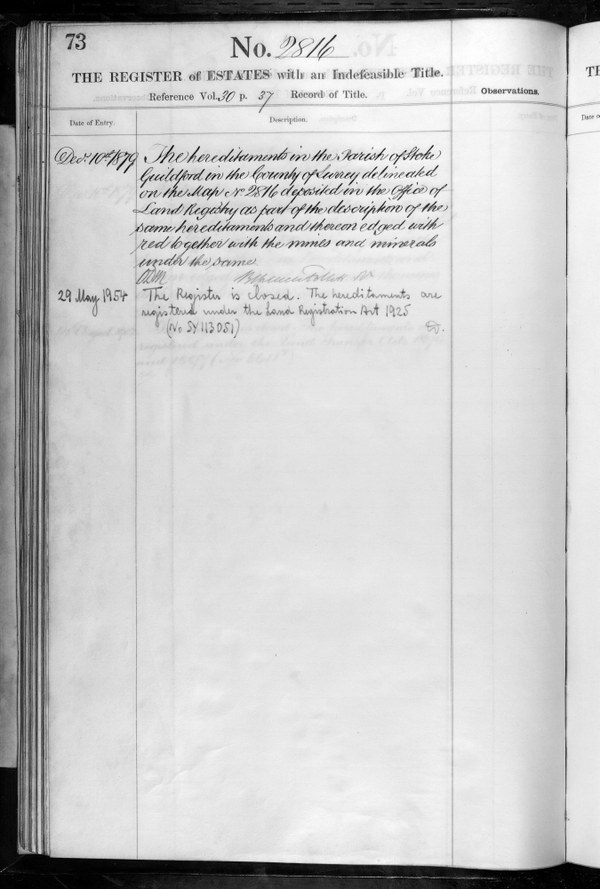 73
No. 2816
THE REGISTER of ESTATES with an Indefeasible Title.
Reference Vol. 30 p. 37 Record of Title.
Observations.
Date of Entry.
Description.
Decr. 10th 1879
The hereditaments in the Parish of Stoke
Guildford in the County of Surrey delineated
on the Map No 2816 deposited in the Office of
Land Registry as part of the description of the
same hereditaments and thereon edged with
red together with the mines and minerals
under the same
29 May 1954
The Register is closed. The hereditaments are
registered under the Land Registration Act 1925
(No SY 113051)